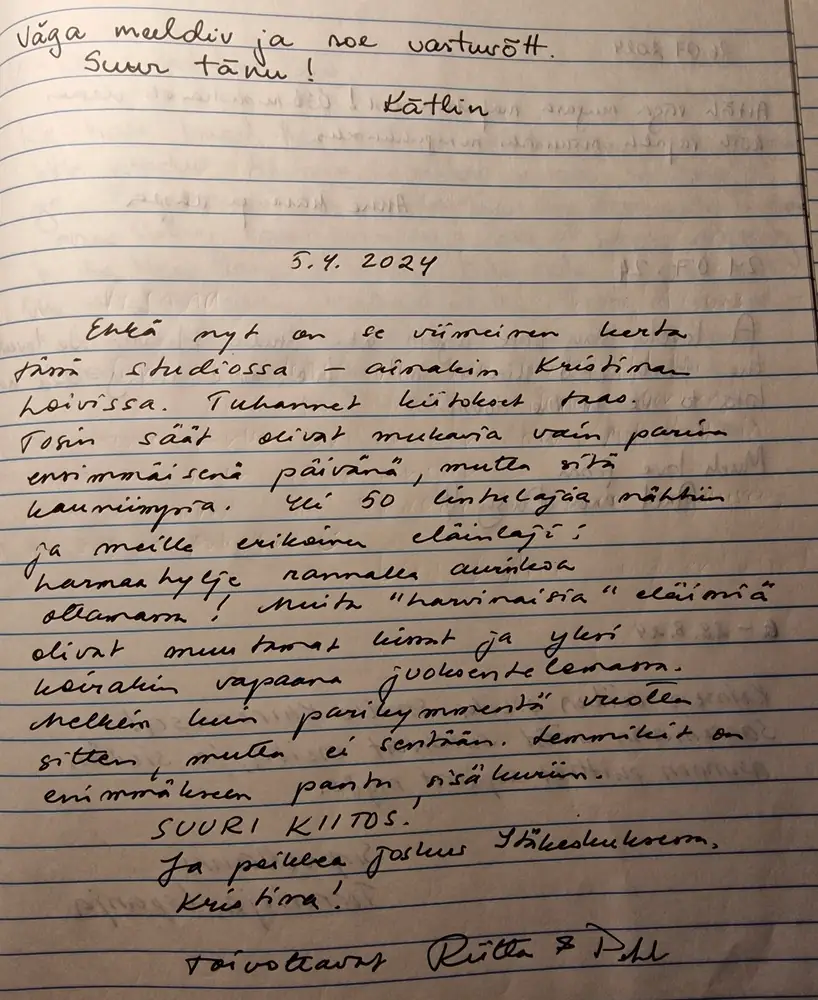 Väga meeldiv ja soe vastuvõtt.
Suur tänu!
Kätlin
5.4. 2024
Ehkä nyt on se viimeinen kerta
tässä studiossa – ainakin Kristinan
hoivissa. Tuhannet kiitokset taas.
Tosin säät olivat mukavia vain parina
ensimmäisenä päivänä, mutta sitä
kauniimpia. Yli 50 lintulajia nähtiin
ja meille erikoinen eläinlaji:
harmaahylje rannalla aurinkoa
ottamassa! Muita "harvinaisia" eläimiä
olivat muutamat kissat ja yksi
koirakin vapaana juoksentelemassa.
Melkein kuin parikymmentä vuotta
sitten, mutta ei sentään. Lemmikit on
enimmäkseen pantu sisäkuriin.
SUURI KIITOS!
Ja peikkea joskus Itäkeskuksessa,
Kristina!
toivottavat Riitta &